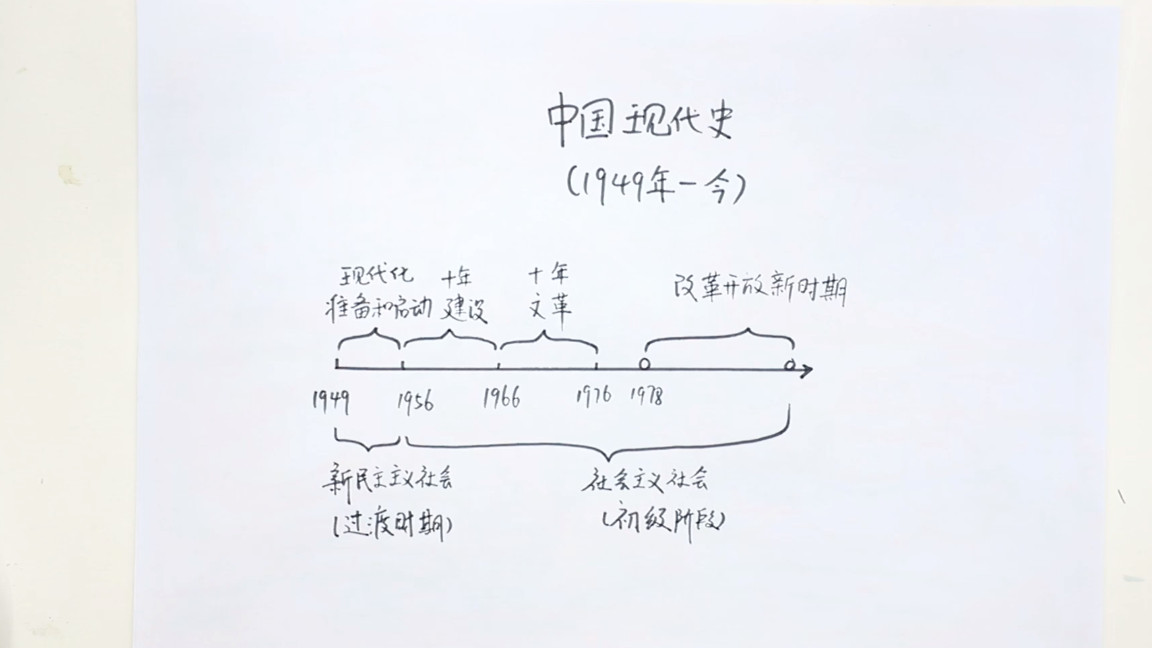 中国现代史
(1949年-今)
现代化
准备和启动
十年
建设
十年
文革
改革开放新时期
1949 1956 1966 1976 1978
新民主主义社会
(过渡时期)
社会主义社会
(初级阶段)